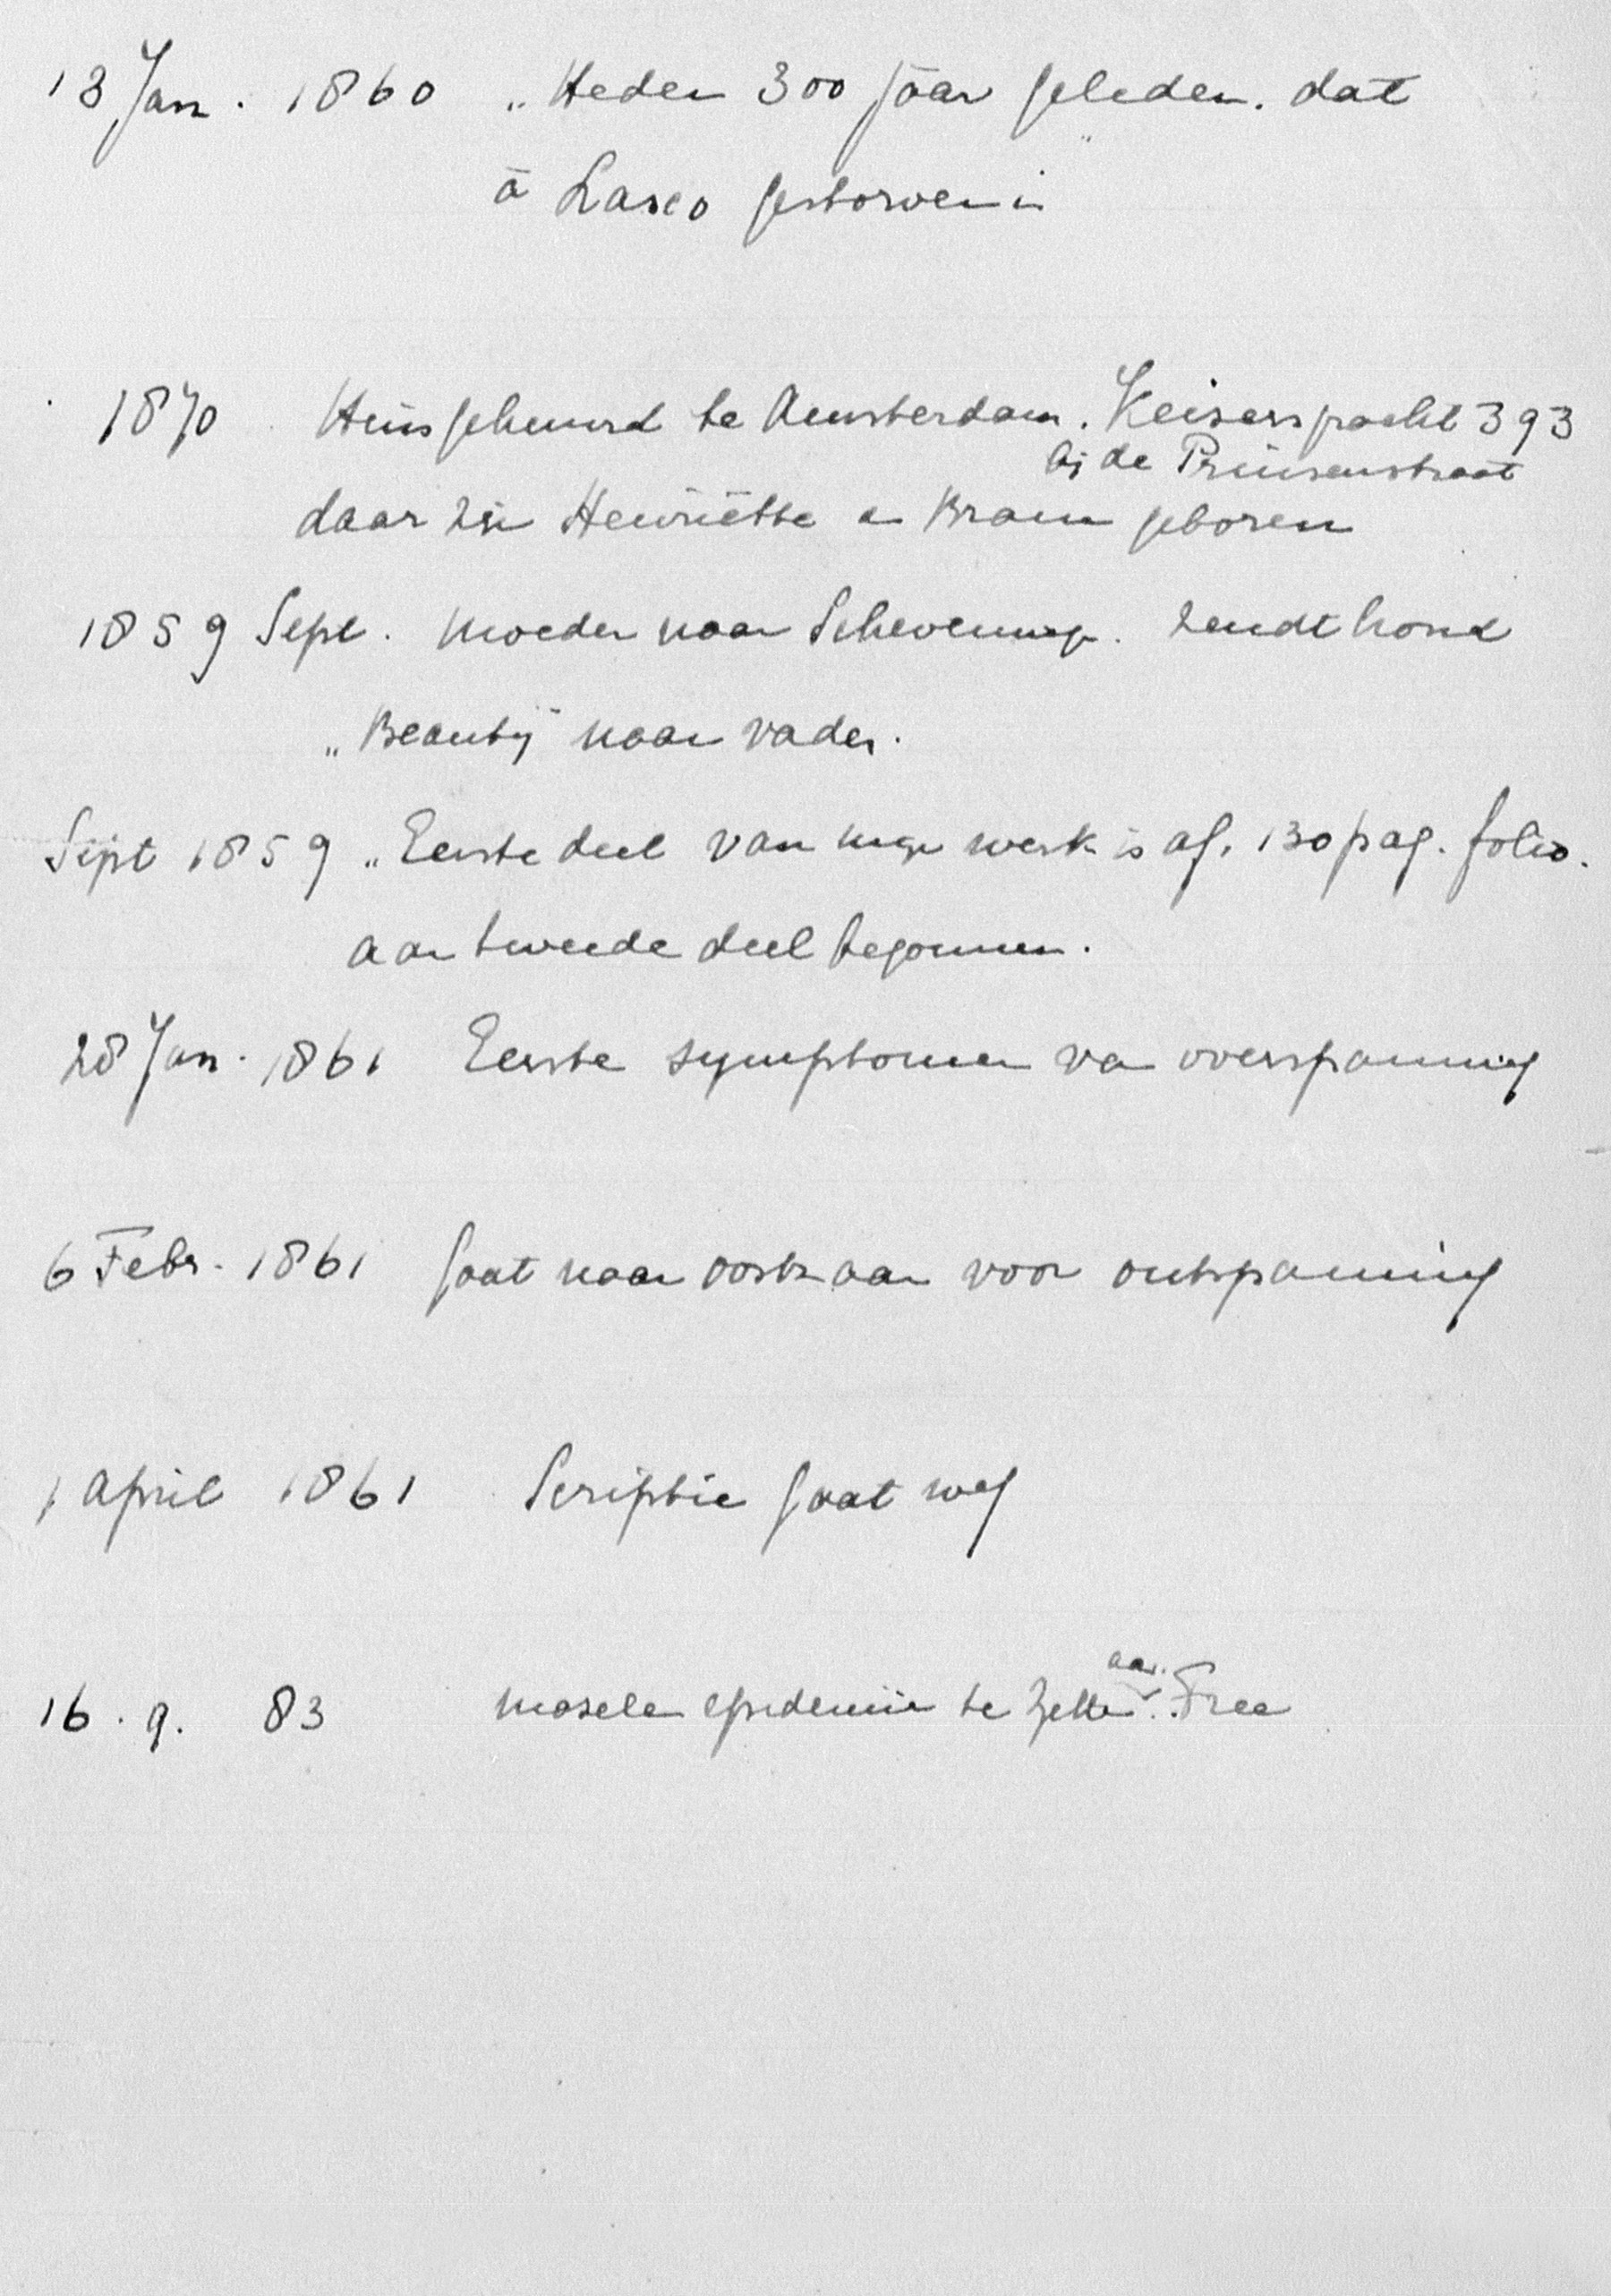 13 Jan. 1860 „Heden 300 jaar geleden. dat
à Lasco gestorven is
1870 Huis gehuurd te Amsterdam. Keizersgracht 393
bij de Prinsenstraat
daar zijn Henriëtte en Bram geboren
1859 Sept. Moeder naar Schevening. Zendt hond
„Beauty" naar vader.
Sept 1859 „Eerste deel van mijn werk is af. 130 pag. folio.
aan tweede deel begonnen.
28 Jan. 1861 Eerste symptomen van overspanning
6 Febr. 1861 Gaat naar Oostzaan voor ontspanning
1 April 1861 Scriptie gaat weg
16. 9. 83 mazelen epidemie te Zetten. aan Free